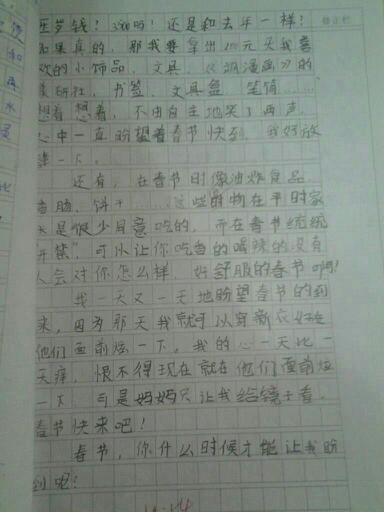 压岁钱！3000吗！还是和去年一样！
如果真的，那我要拿出100元买我喜
欢的小饰品，文具，《漫画》的
书签，文具盒，笔筒……
想着想着，不由自主地笑了两声，
心中一直盼望着春节快到，我好放
一下。
还有，在春节时像油炸食品，
香肠，饼干……这些食物在平时家
是很少同意吃的，而在春节统统
“开禁”，可以让你吃香的喝辣的没有
人会对你怎么样，好舒服的春节啊！
我一天又一天地盼望春节的到
来，因为那天我就可以穿新衣好在
他们面前炫一下，我的心一天比一
天痒，恨不得现在就在他们面前炫
一下，可是妈妈只让我给镜子看，
春节快来吧！
春节，你什么时候才能让我盼
到呢？